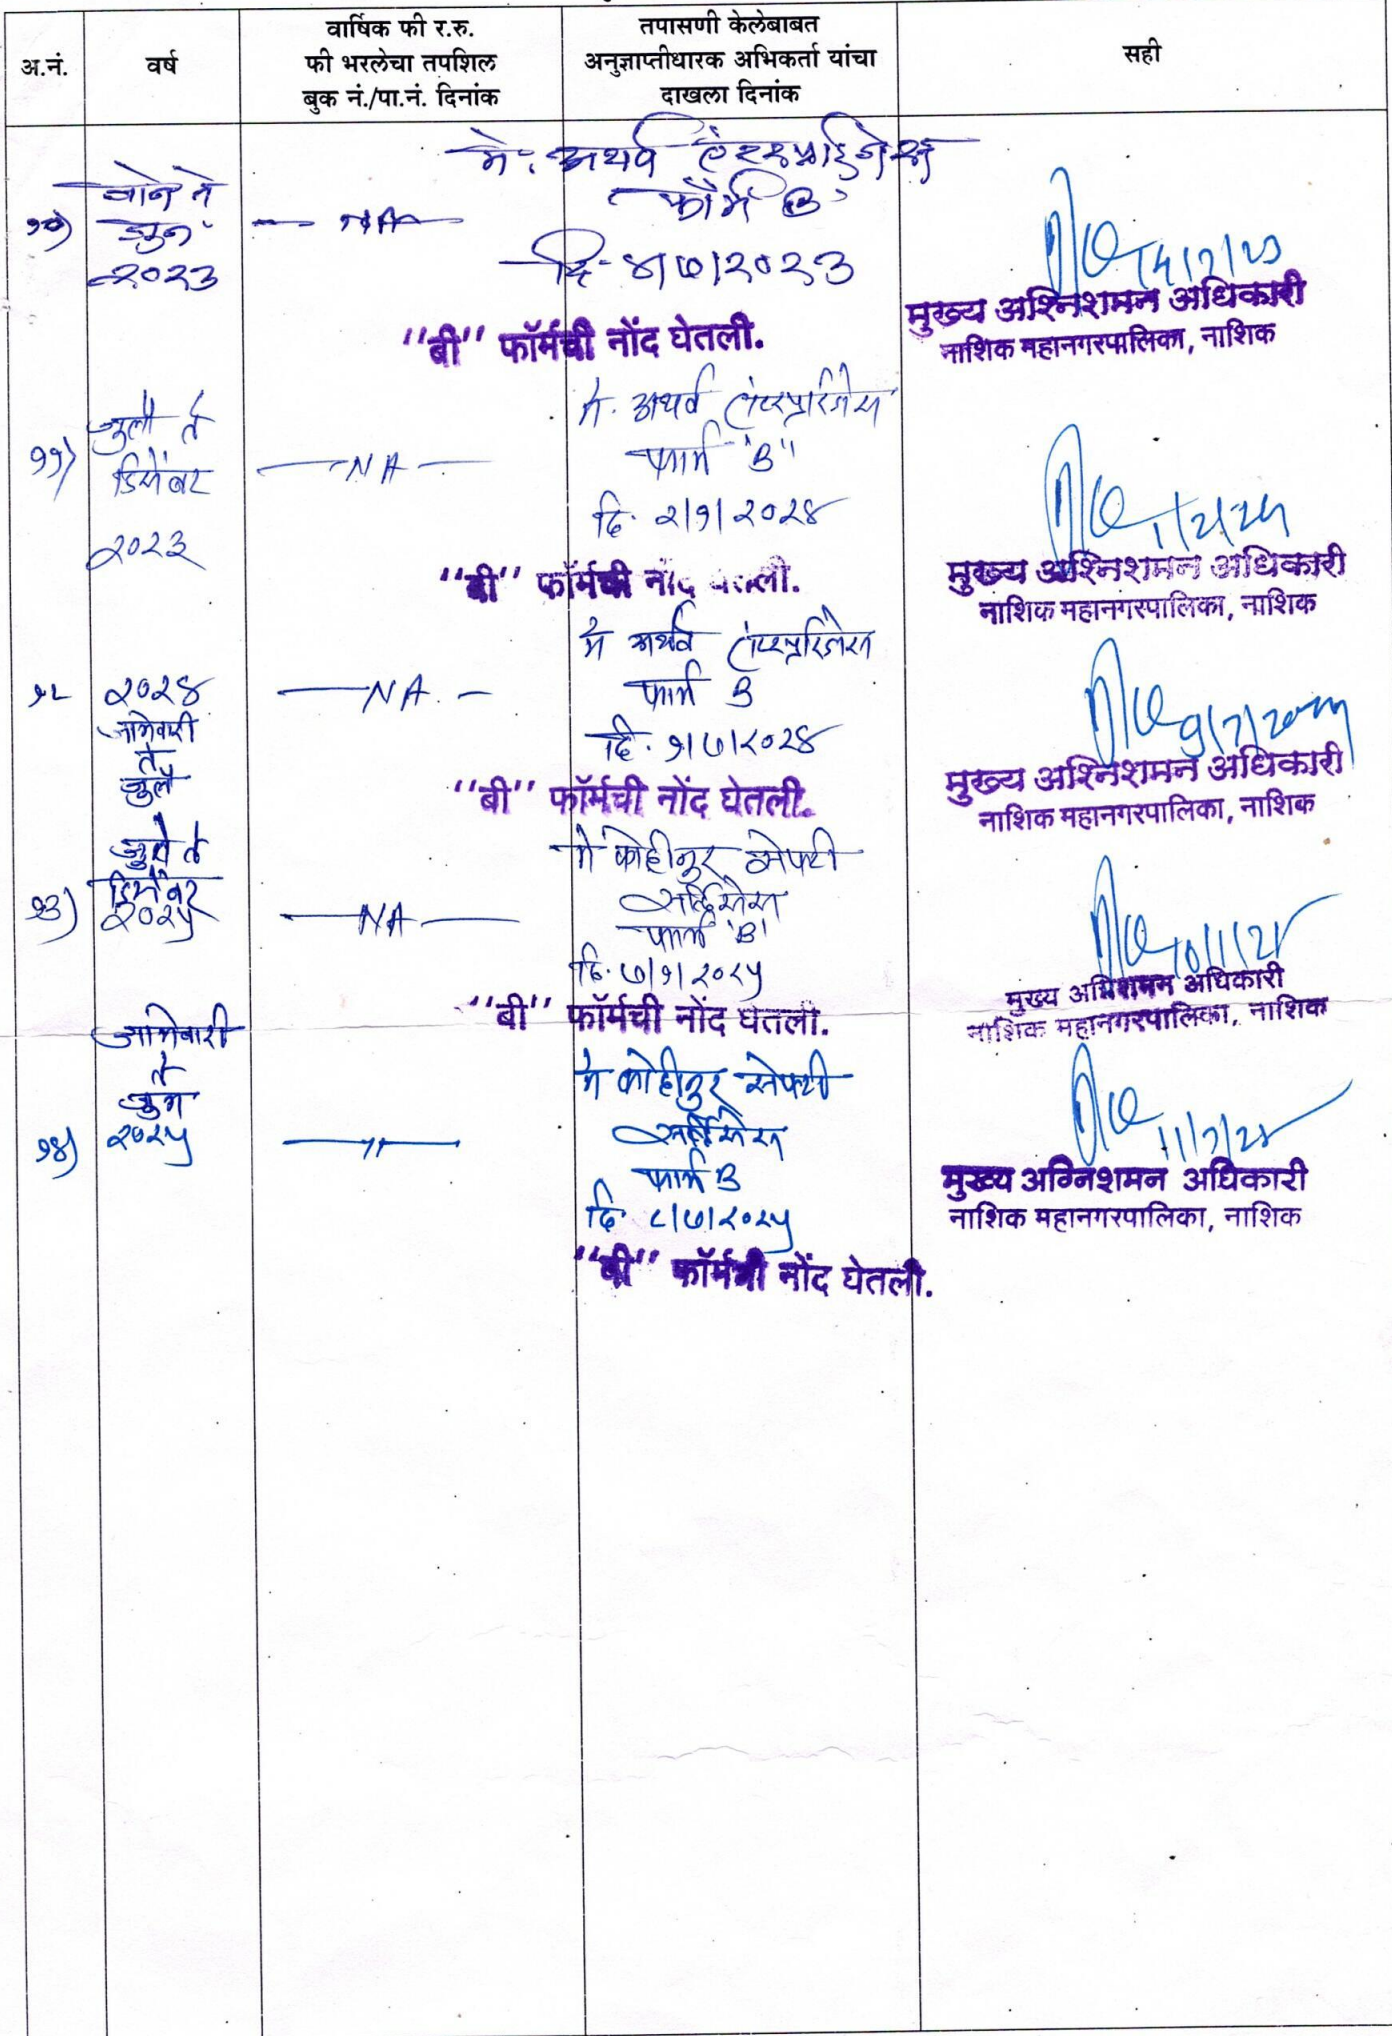 अ.नं.
वर्ष
वार्षिक फी र.रु.
फी भरलेचा तपशिल
बुक नं./पा.नं. दिनांक
तपासणी केलेबाबत
अनुज्ञाप्तीधारक अभिकर्ता यांचा
दाखला दिनांक
सही
१०)
जाने ते
जुन
२०२३
NA
मे. अथर्व एंटरप्राईजेस
फॉर्म B
दि- ४/७/२०२३
"बी" फॉर्मची नोंद घेतली.
मुख्य अग्निशमन अधिकारी
नाशिक महानगरपालिका, नाशिक
११)
जुलै ते
डिसेंबर
२०२३
NA
मे. अथर्व एंटरप्रायजेस
फार्म "B"
दि. २/१/२०२४
"बी" फॉर्मची नोंद घेतली.
मुख्य अग्निशमन अधिकारी
नाशिक महानगरपालिका, नाशिक
१२
२०२४
जानेवारी
ते
जुलै
NA
मे अथर्व एंटरप्रायजेस
फार्म B
दि. १/७/२०२४
"बी" फॉर्मची नोंद घेतली.
मुख्य अग्निशमन अधिकारी
नाशिक महानगरपालिका, नाशिक
१३)
जुलै ते
डिसेंबर
NA
मे कोहीनुर सेफ्टी
सर्व्हिसेस
फार्म 'B'
दि. ७/१/२०२५
"बी" फॉर्मची नोंद घेतली.
मुख्य अग्निशमन अधिकारी
नाशिक महानगरपालिका, नाशिक
१४)
जानेवारी
ते
जुन
२०२५
"
मे कोहीनुर सेफ्टी
सर्व्हिसेस
फार्म B
दि. ८/७/२०२५
"बी" फॉर्मची नोंद घेतली.
मुख्य अग्निशमन अधिकारी
नाशिक महानगरपालिका, नाशिक